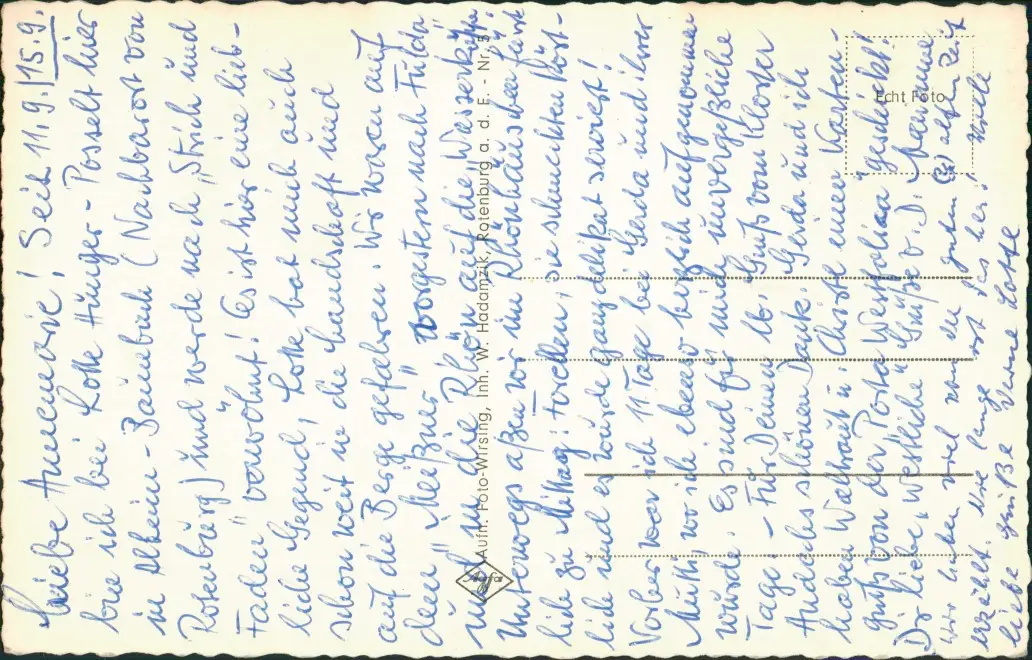 Liebe Annemarie! Seit 11.9./15.9.
bin ich bei Lotte Hünger-Posselt hier
in Alheim-Baumbach (Nachbarort von
Rotenburg) und werde nach "Strich und
Faden" verwöhnt! Es ist hier eine lieb-
liche Gegend, Lotte hat mich auch
schon weit in die Landschaft und
auf die Berge gefahren. Wir waren auf
dem "Meißner" vorgestern nach Fulda
und in die Rhön auf die "Wasserkuppe.
Unterwegs aßen wir im Rhönhäuschen fürst-
lich zu Mittag: Forellen, sie schmeckten köst-
lich und es wurde ganz delikat serviert!
Vorher war ich 11 Tage bei Gerda und ihrer
Mutti, wo ich ebenso herzlich aufgenommen
wurde. Es sind für mich unvergeßliche
Tage. - Für Deinen lb. Gruß vom Kloster
Andechs schönen Dank. Gerda und ich
haben Waltraut u. einen Karten-
gruß von der Porta Westfalica geschickt!
Dir liebe, "westliche" Grüße v. D.
wir haben viel von der guten alten Zeit
erzählt.
liebe Grüße Deine Lotte
Echt Foto
Agfa
Aufn. Foto-Wirsing, Inh. W. Hadamzik, Rotenburg a. d. F. - Nr. 5